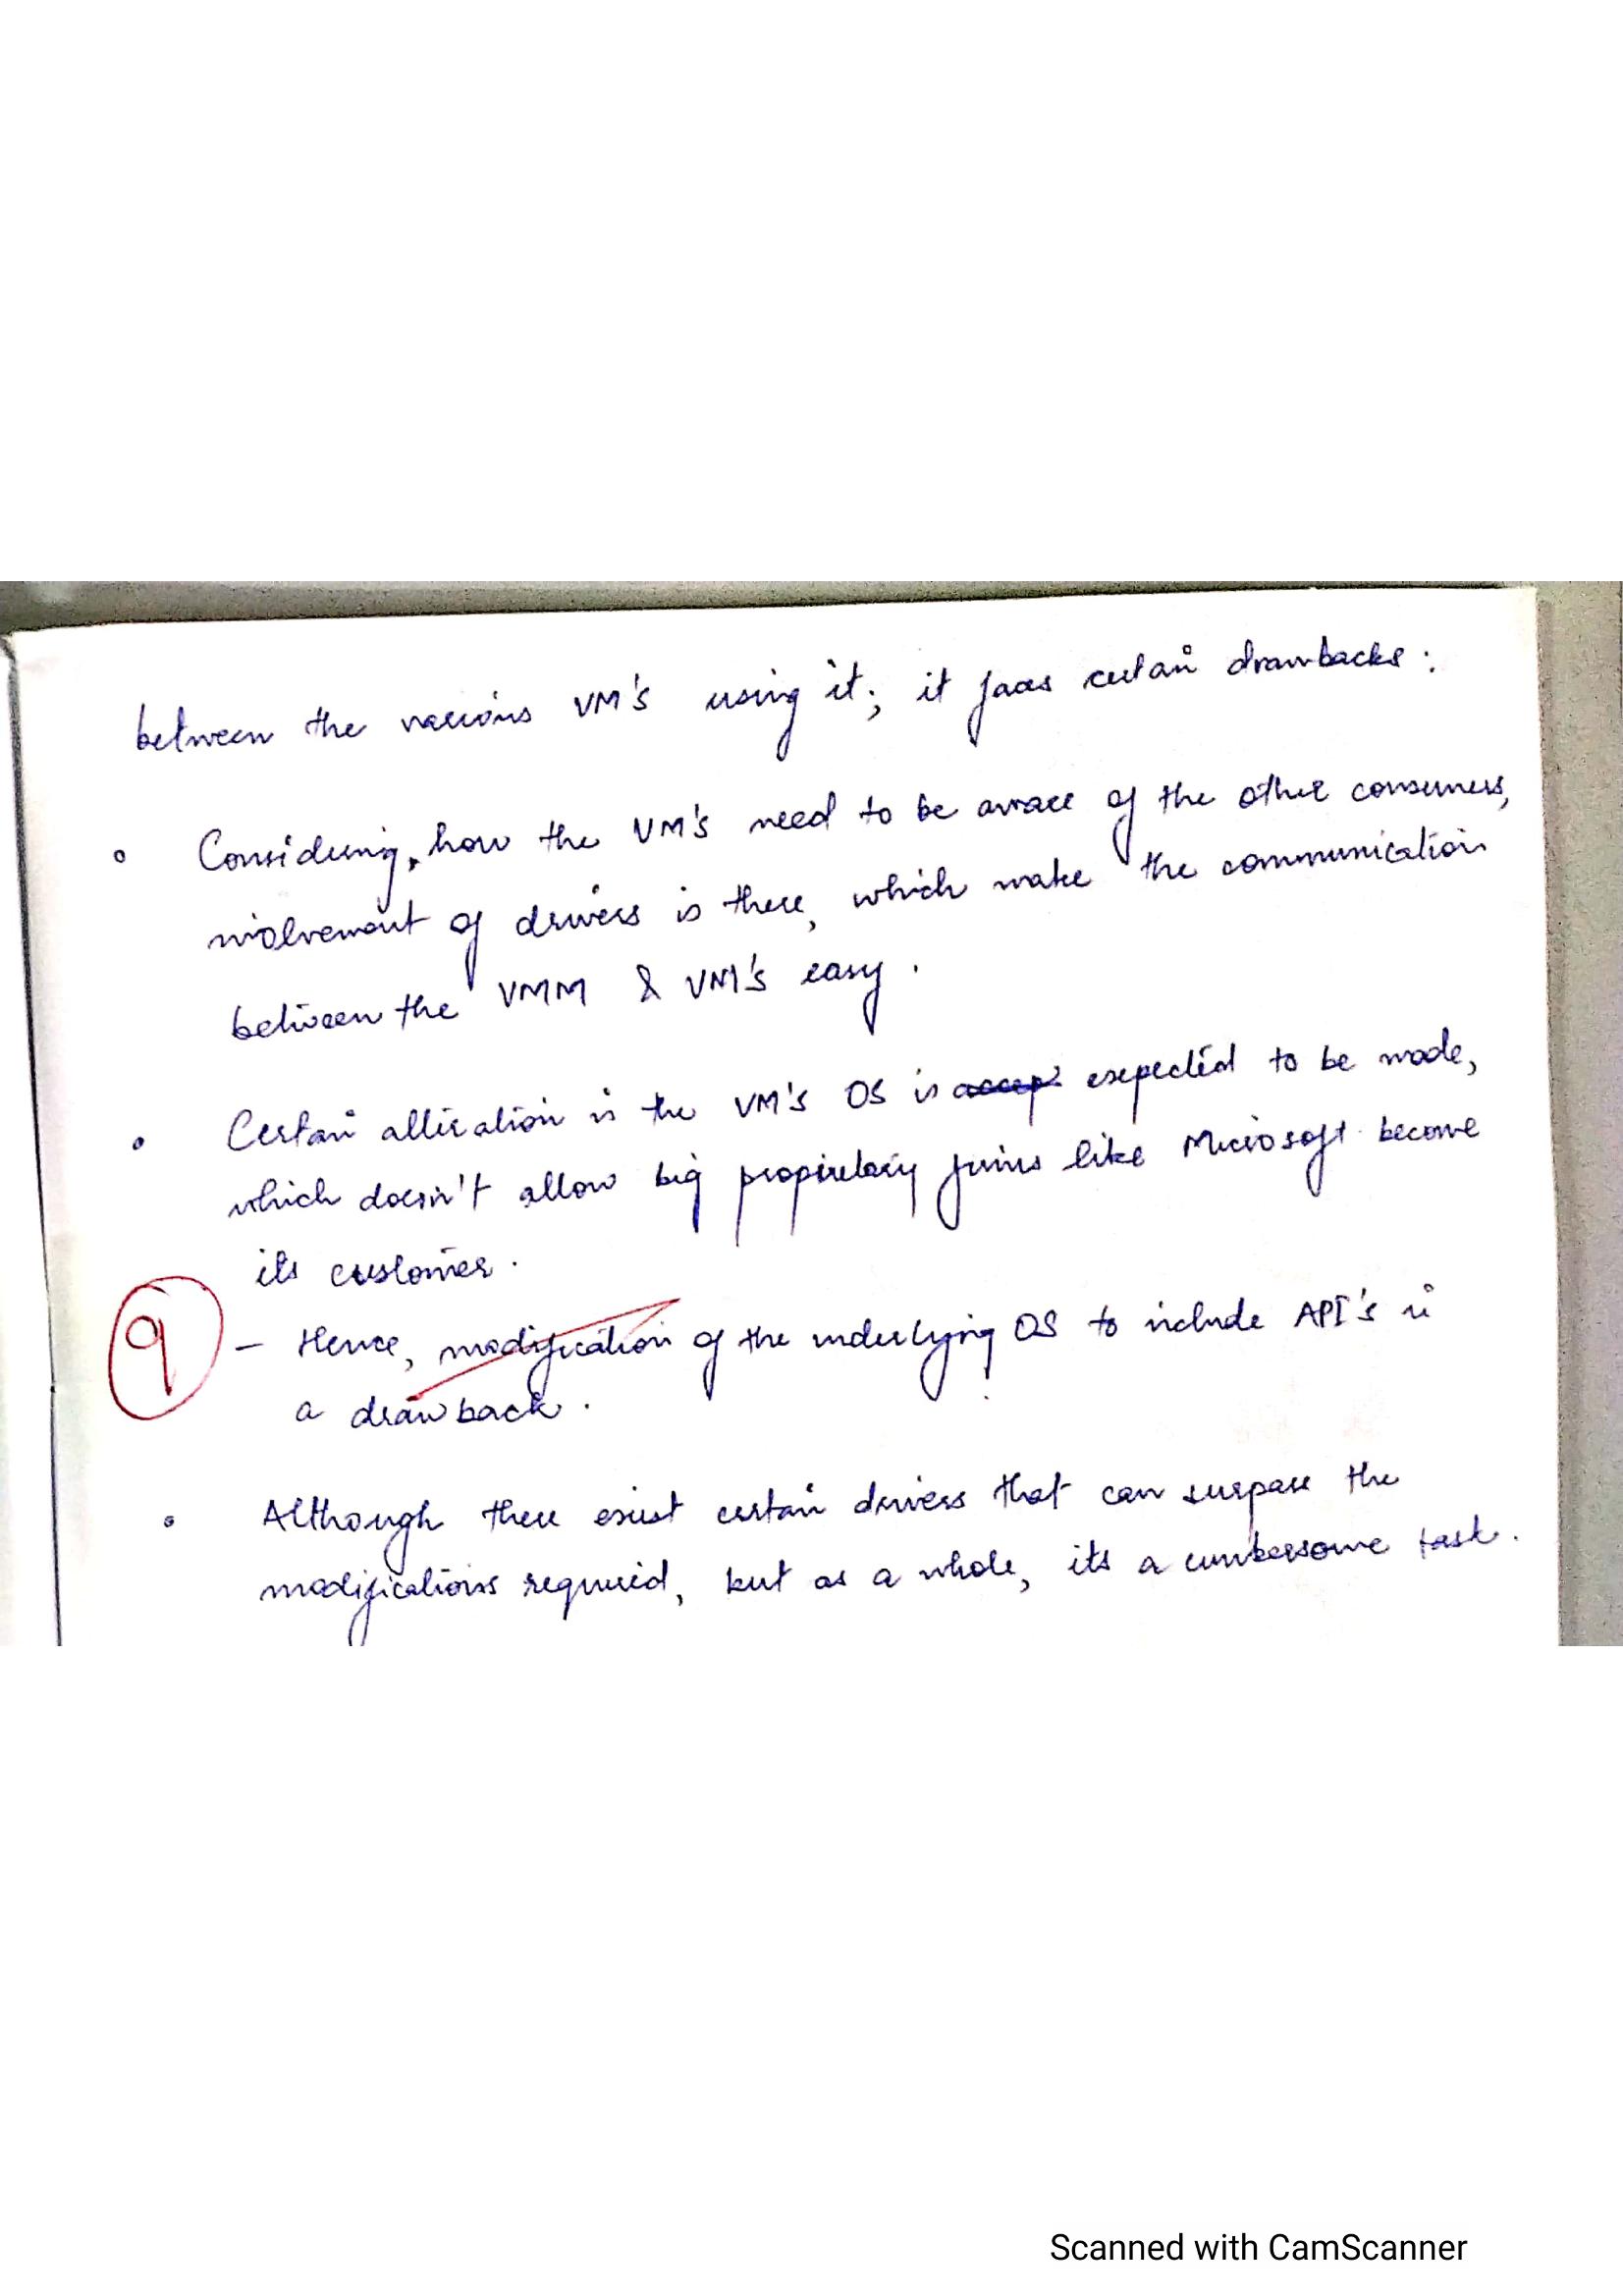 between the various VM's using it; it faces certain drawbacks:
Considering, how the VM's need to be aware of the other consumers,
involvement of drivers is there, which make the communication
between the VMM & VM's easy.
Certain alteration in the VM's OS is expected to be made,
which doesn't allow big propietary firms like Microsoft become
its customer.
9 - Hence, modification of the underlying OS to include API's is
a drawback.
Although there exist certain drivers that can surpass the
modifications required, but as a whole, its a cumbersome task.
Scanned with CamScanner